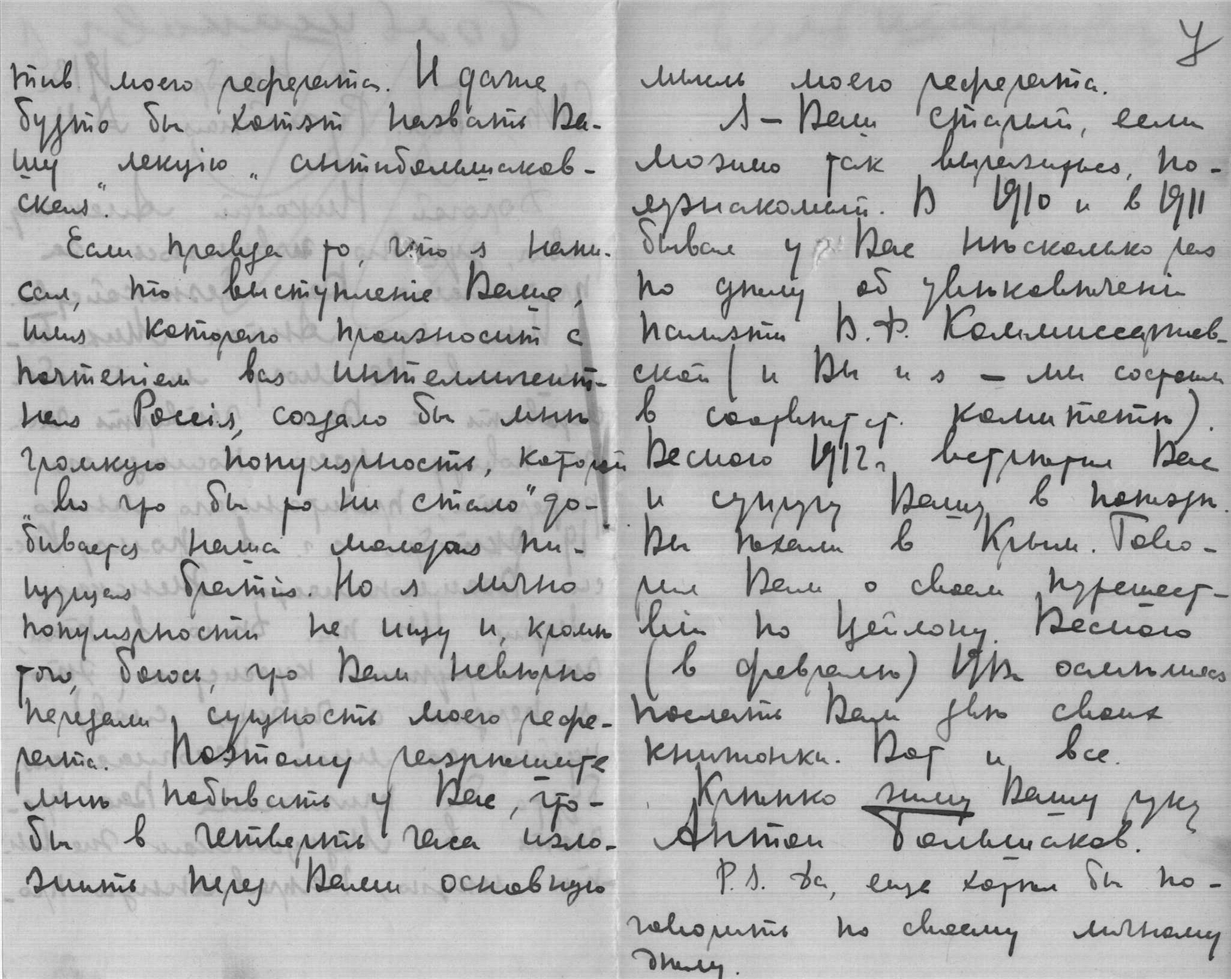 тив моего реферата. И даже
будто бы хотят назвать Ва-
шу лекцію „антибольшаков-
ская".
Если правда то, что я напи-
сал, то выступленіе Ваше,
имя котораго произносит с
почтеніем вся интеллигент-
ная Россія, создало бы мнѣ
громкую популярность, которой
„во что бы то ни стало" до-
бивается наша молодая пи-
шущая братія. Но я лично
популярности не ищу и, кромѣ
того, боюсь, что Вам невѣрно
передали сущность моего рефе-
рата. Поэтому разрѣшите
мнѣ побывать у Вас, что-
бы в четверть часа изло-
жить перед Вами основную
У
мысль моего реферата.
Я – Ваш старый, если
можно так выразиться, по-
лузнакомый. В 1910 и в 1911
бывал у Вас нѣсколько раз
по дѣлу об увѣковѣченіи
памяти В. Ф. Коммиссаржев-
ской (и Вы и я – мы состояли
в соотвѣтст. комитетѣ).
Весною 1912 г. встрѣтил Вас
и супругу Вашу в поѣздѣ.
Вы ѣхали в Крым. Гово-
рил Вам о своем путешест-
віи по Цейлону. Весною
(в февралѣ) осмѣлился
послать Вам двѣ своих
книжонки. Вот и все.
Крѣпко жму Вашу руку
Антон Большаков.
P. S. Да, еще хотѣл бы по-
говорить по своему личному
дѣлу.